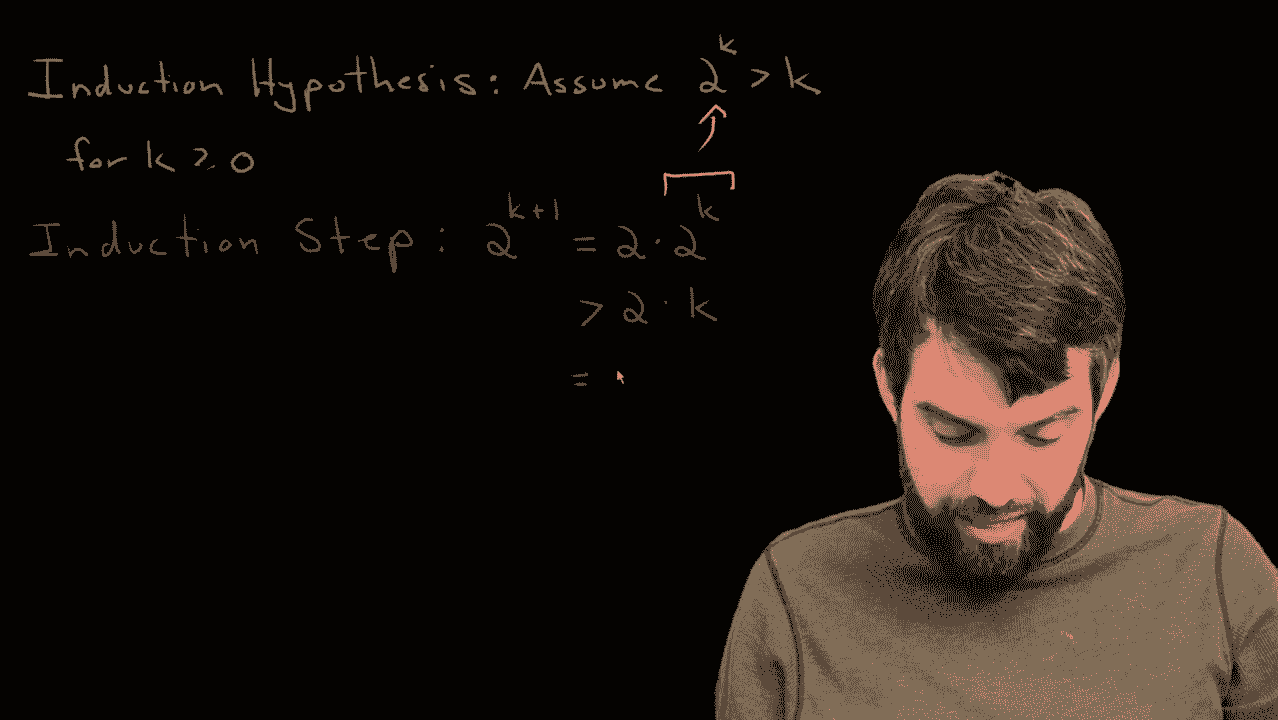 Induction Hypothesis: Assume 2^k > k
for k ≥ 0
Induction Step: 2^{k+1} = 2 · 2^k
> 2 · k
=